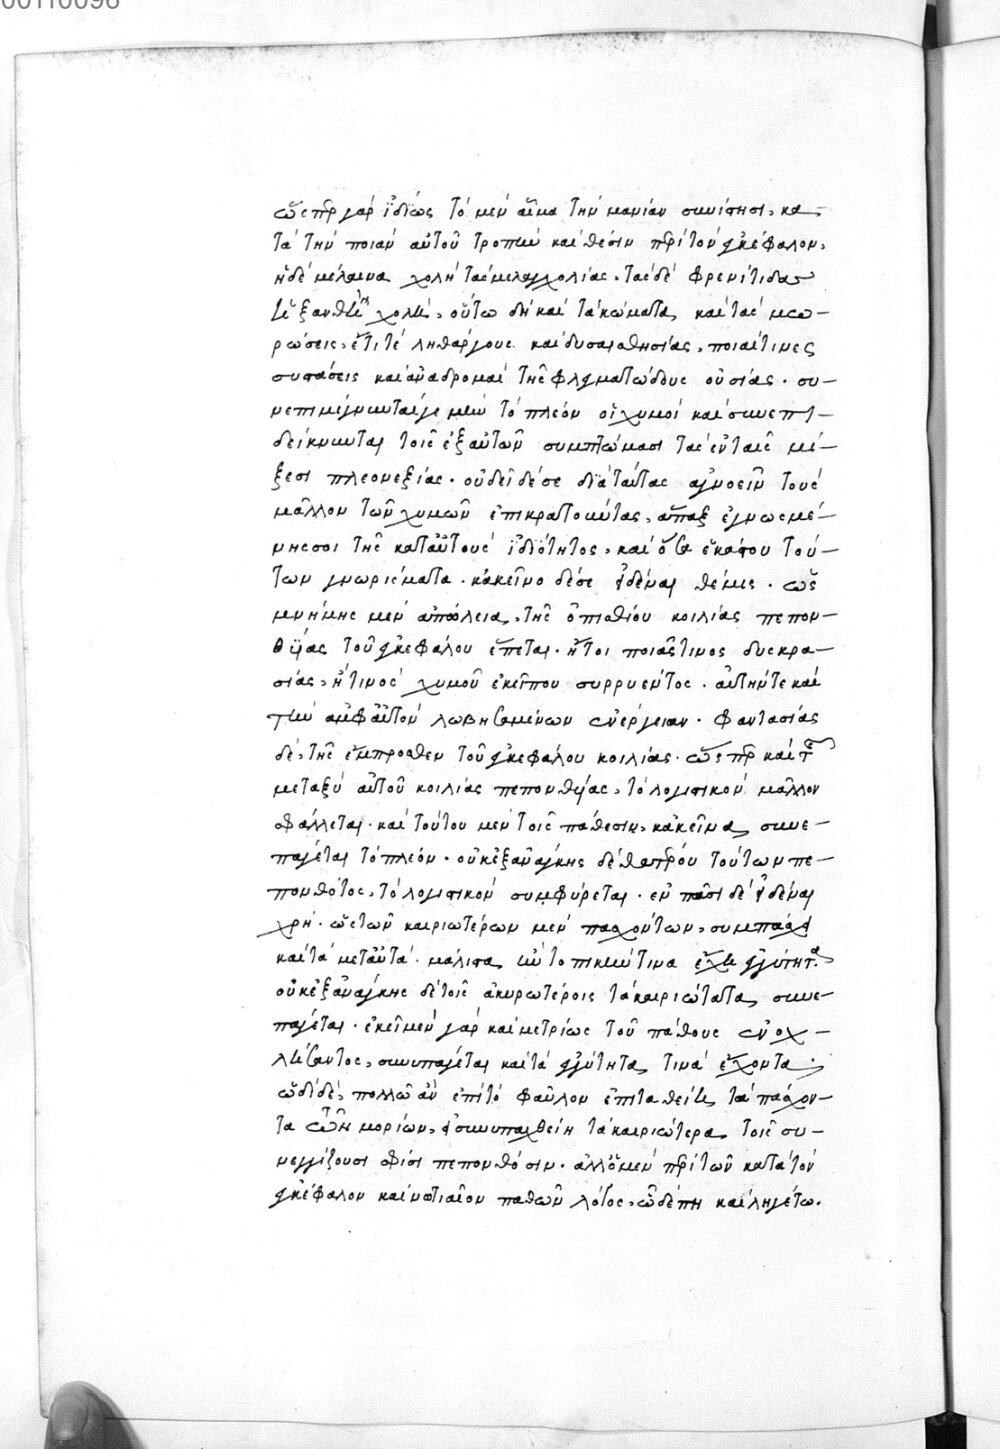 00110096
ὥσπερ γὰρ ἰδίως τὸ μὲν αἷμα τὴν μανίαν συνίστησι, κα-
τὰ τὴν ποιὰν αὐτοῦ τροπὴν καὶ θέσιν περὶ τὸν ἐγκέφαλον,
ἡ δὲ μέλαινα χολὴ τὰς μελαγχολίας, τὰς δὲ φρενίτιδας
ἡ ξανθὴ χολὴ, οὕτω δὴ καὶ τὰ κώματα καὶ τὰς μω-
ρώσεις, ἔτι τὲ ληθάργους καὶ δυσαισθησίας, ποιαί τινες
συστάσεις καὶ ἀναδρομαὶ τῆς φλεγματώδους οὐσίας. συ-
νεπιμίγνυνται γε μὴν τὸ πλέον οἱ χυμοὶ καὶ συνεπι-
δείκνυνται τοῖς ἐξ αὐτῶν συμπτώμασι τὰς ἐν ταῖς μί-
ξεσι πλεονεξίας. οὐδεῖ δέ σε διὰ ταῦτας ἀγνοεῖν τοὺς
μᾶλλον τῶν χυμῶν ἐπικρατοῦντας, ἅπαξ ἐγνωσμέ-
νης σοι τῆς κατ' αὐτοὺς ἰδιότητος, καὶ ὅσα ἑκάστου τού-
των γνωρίσματα. κἀκεῖνο δέ σε εἰδέναι θέμις. ὡς
μνήμης μὲν ἀπώλεια, τῆς ὀπισθίου κοιλίας πεπον-
θυίας τοῦ ἐγκεφάλου ἕπεται. ἤτοι ποιᾶς τινος δυσκρα-
σίας, ἤ τινος χυμοῦ ἐκεῖ που συρρυέντος. αὐτήν τε καὶ
τὴν ἀμφ' αὐτὸν λωβησαμένων ἐνέργειαν. φαντασίας
δὲ, τῆς ἔμπροσθεν τοῦ ἐγκεφάλου κοιλίας. ὥσπερ καὶ τῆς
μεταξὺ αὐτοῦ κοιλίας πεπονθυίας, τὸ λογιστικὸν μᾶλλον
σφάλλεται. καὶ τούτου μὲν τοῖς πάθεσιν, κἀκεῖνα συνε-
πάγεται τὸ πλέον. οὐκ ἐξ ἀνάγκης δὲ θατέρου τούτων πε-
πονθότος, τὸ λογιστικὸν συμφύρεται. ἐν πᾶσι δὲ εἰδέναι
χρὴ. ὡς τῶν καιριωτέρων μὲν πασχόντων, συμπάσχει
καὶ τὰ μετ' αὐτά. μάλιστα ἢν τοπικήν τινα ἔχει ἐγγύτητα,
οὐκ ἐξ ἀνάγκης δὲ τοῖς ἀκυρωτέροις τὰ καιριώτατα συνε-
πάγεται. ἐκεῖ μὲν γὰρ καὶ μετρίως τοῦ πάθους ἐνοχ-
λήσαντος, συνυπάγεται καὶ τὰ ἐγγύτητα τινὰ ἔχοντα.
ὡδὶ δὲ, πολλῷ ἂν ἐπὶ τὸ φαῦλον ἐπιταθείη τὰ πάσχον-
τα τῶν μορίων, εἰ συνυπαχθείη τὰ καιριώτερα τοῖς συ-
νεγγίζουσι σφίσι πεπονθόσιν. ἀλλ' ὁ μὲν περὶ τῶν κατὰ τὸν
ἐγκέφαλον καὶ νωτιαῖον παθῶν λόγος, ὧδέ πη καὶ ληγέτω.